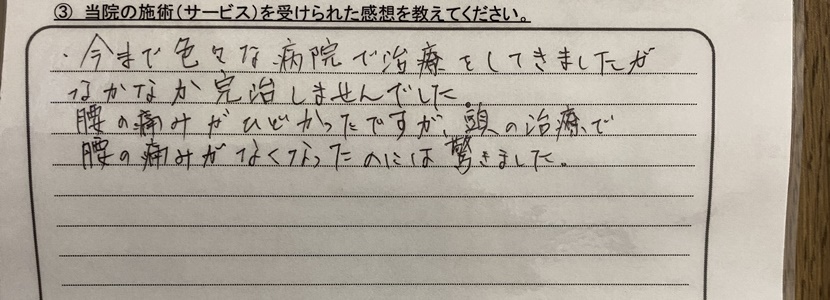 ③ 当院の施術(サービス)を受けられた感想を教えてください。
・今まで色々な病院で治療をしてきましたが
なかなか完治しませんでした。
腰の痛みがひどかったですが、頭の治療で
腰の痛みがなくなったのには驚きました。